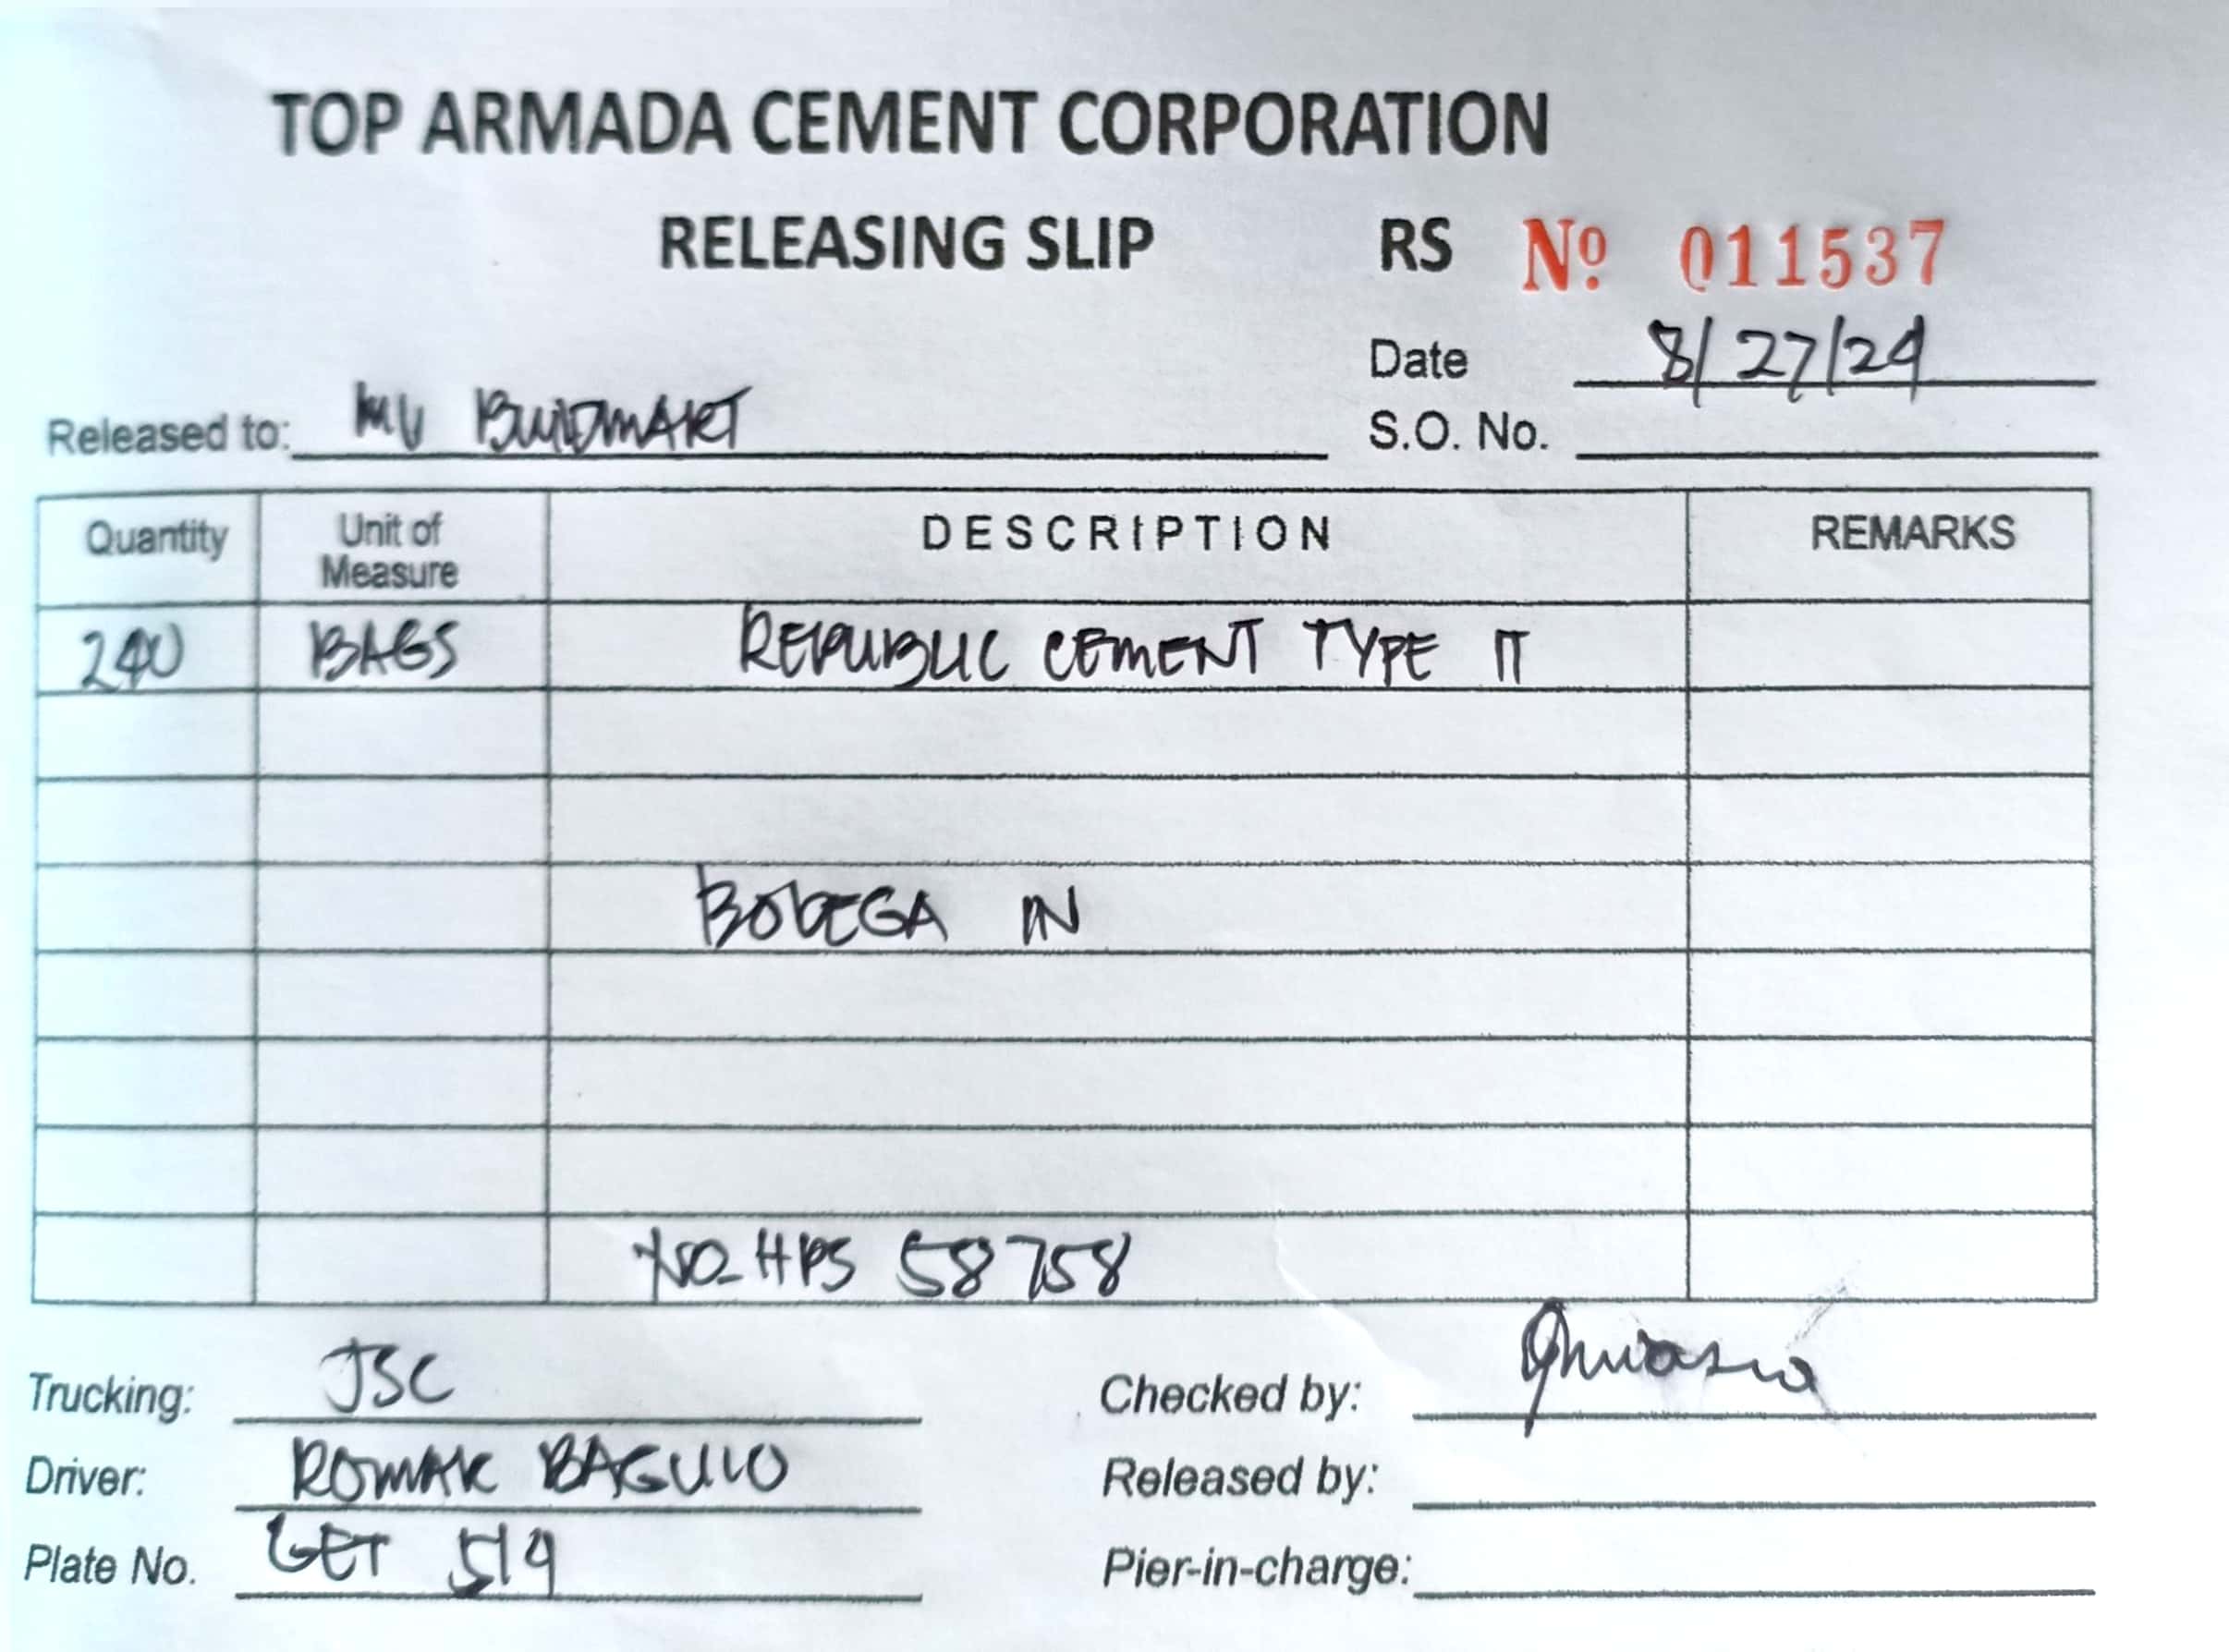 TOP ARMADA CEMENT CORPORATION
RELEASING SLIP RS Nº 011537
Date 8/27/24
Released to: MV BUILDMART S.O. No.
Quantity Unit of Measure DESCRIPTION REMARKS
240 BAGS REPUBLIC CEMENT TYPE IT
BODEGA IN
HPS 58758
Trucking: JSC Checked by:
Driver: ROMAR BAGUIO Released by:
Plate No. GET 519 Pier-in-charge: